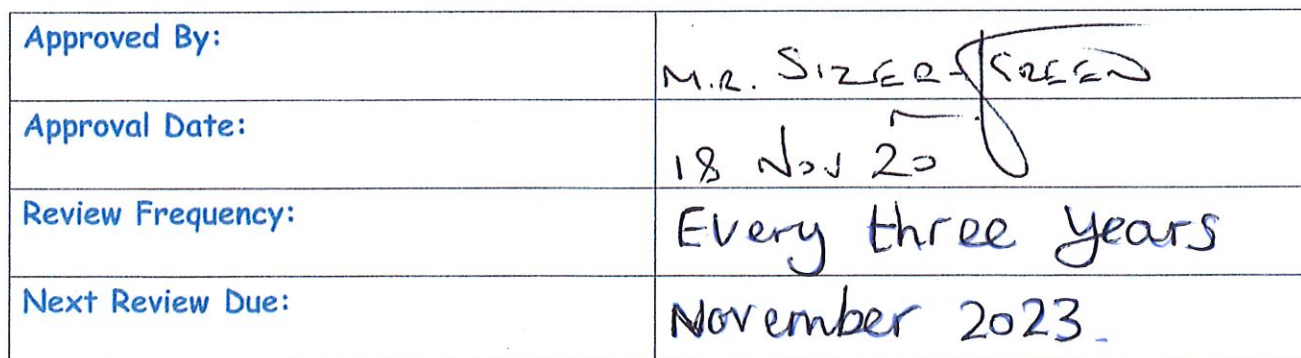 Approved By: M.R. SIZER-GREEN
Approval Date: 18 Nov 20
Review Frequency: Every three years
Next Review Due: November 2023.